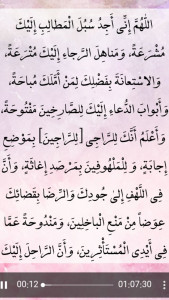 اللَّهُمَّ إِنِّي أَجِدُ سُبُلَ الْمَطَالِبِ إِلَيْكَ
مُشْرَعَةً، وَمَنَاهِلَ الرَّجاءِ إِلَيْكَ مُتْرَعَةً،
وَالاسْتِعَانَةَ بِفَضْلِكَ لِمَنْ أَمَّلَكَ مُبَاحَةً
وَأَبْوَابَ الدُّعاءِ إِلَيْكَ لِلصَّارِخِينَ مَفْتُوحَةً،
وَأَعْلَمُ أَنَّكَ لِلرَّاجِي [لِلرَّاجِينَ] بِمَوْضِعِ
إِجابَةٍ، وَ لِلْمَلْهُوفِينَ بِمَرْصَدِ إِغَاثَةٍ، وَأَنَّ
فِي اللَّهْفِ إِلَى جُودِكَ وَالرِّضَا بِقَضَائِكَ
عِوَضاً مِنْ مَنْعِ الْبَاخِلِينَ، وَمَنْدُوحَةً عَمَّا
فِي أَيْدِي الْمُسْتَأْثِرِينَ، وَأَنَّ الرَّاحِلَ إِلَيْكَ
00:12
01:07:30